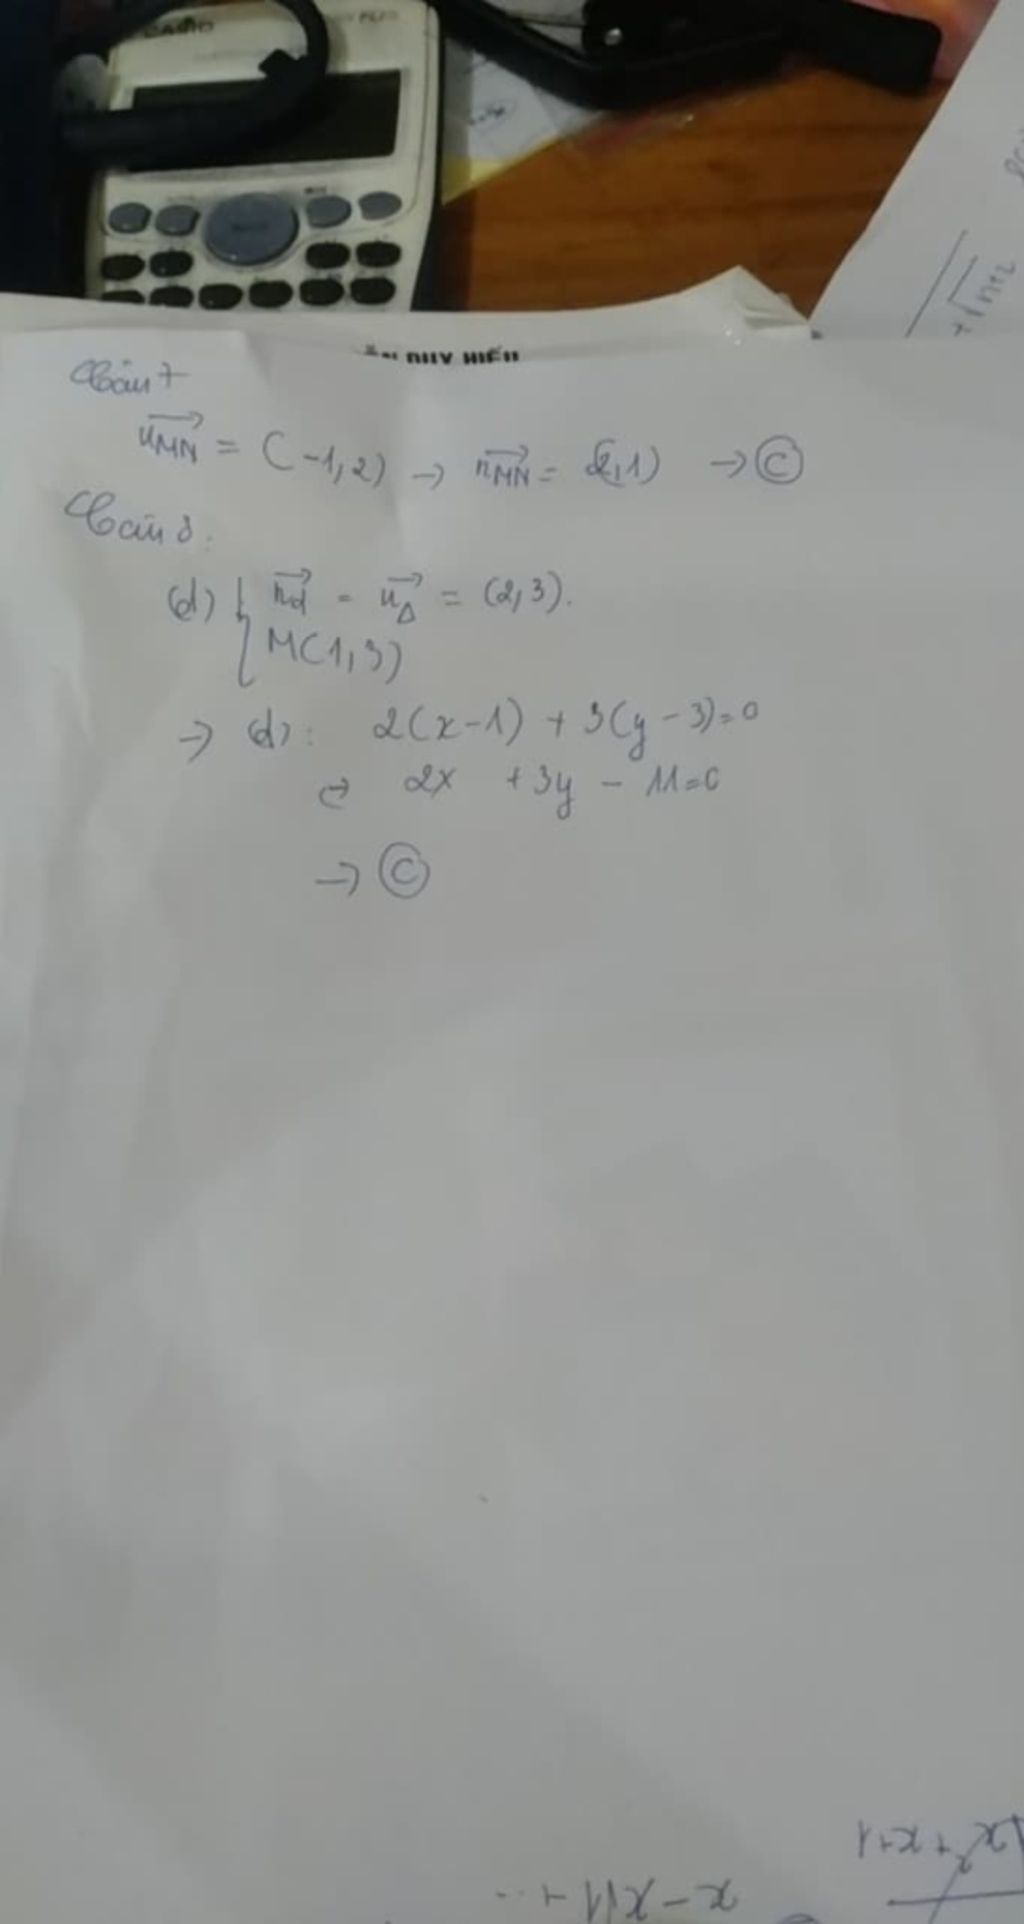 CASIO
DUY HIẾU
Câu 7
u_MN = (-1, 2) → n_MN = (2, 1) → C
Câu 8:
(d) { n_d = u_Δ = (2, 3).
M(1, 3)
→ (d): 2(x-1) + 3(y-3)=0
⇔ 2x + 3y - 11=0
→ C